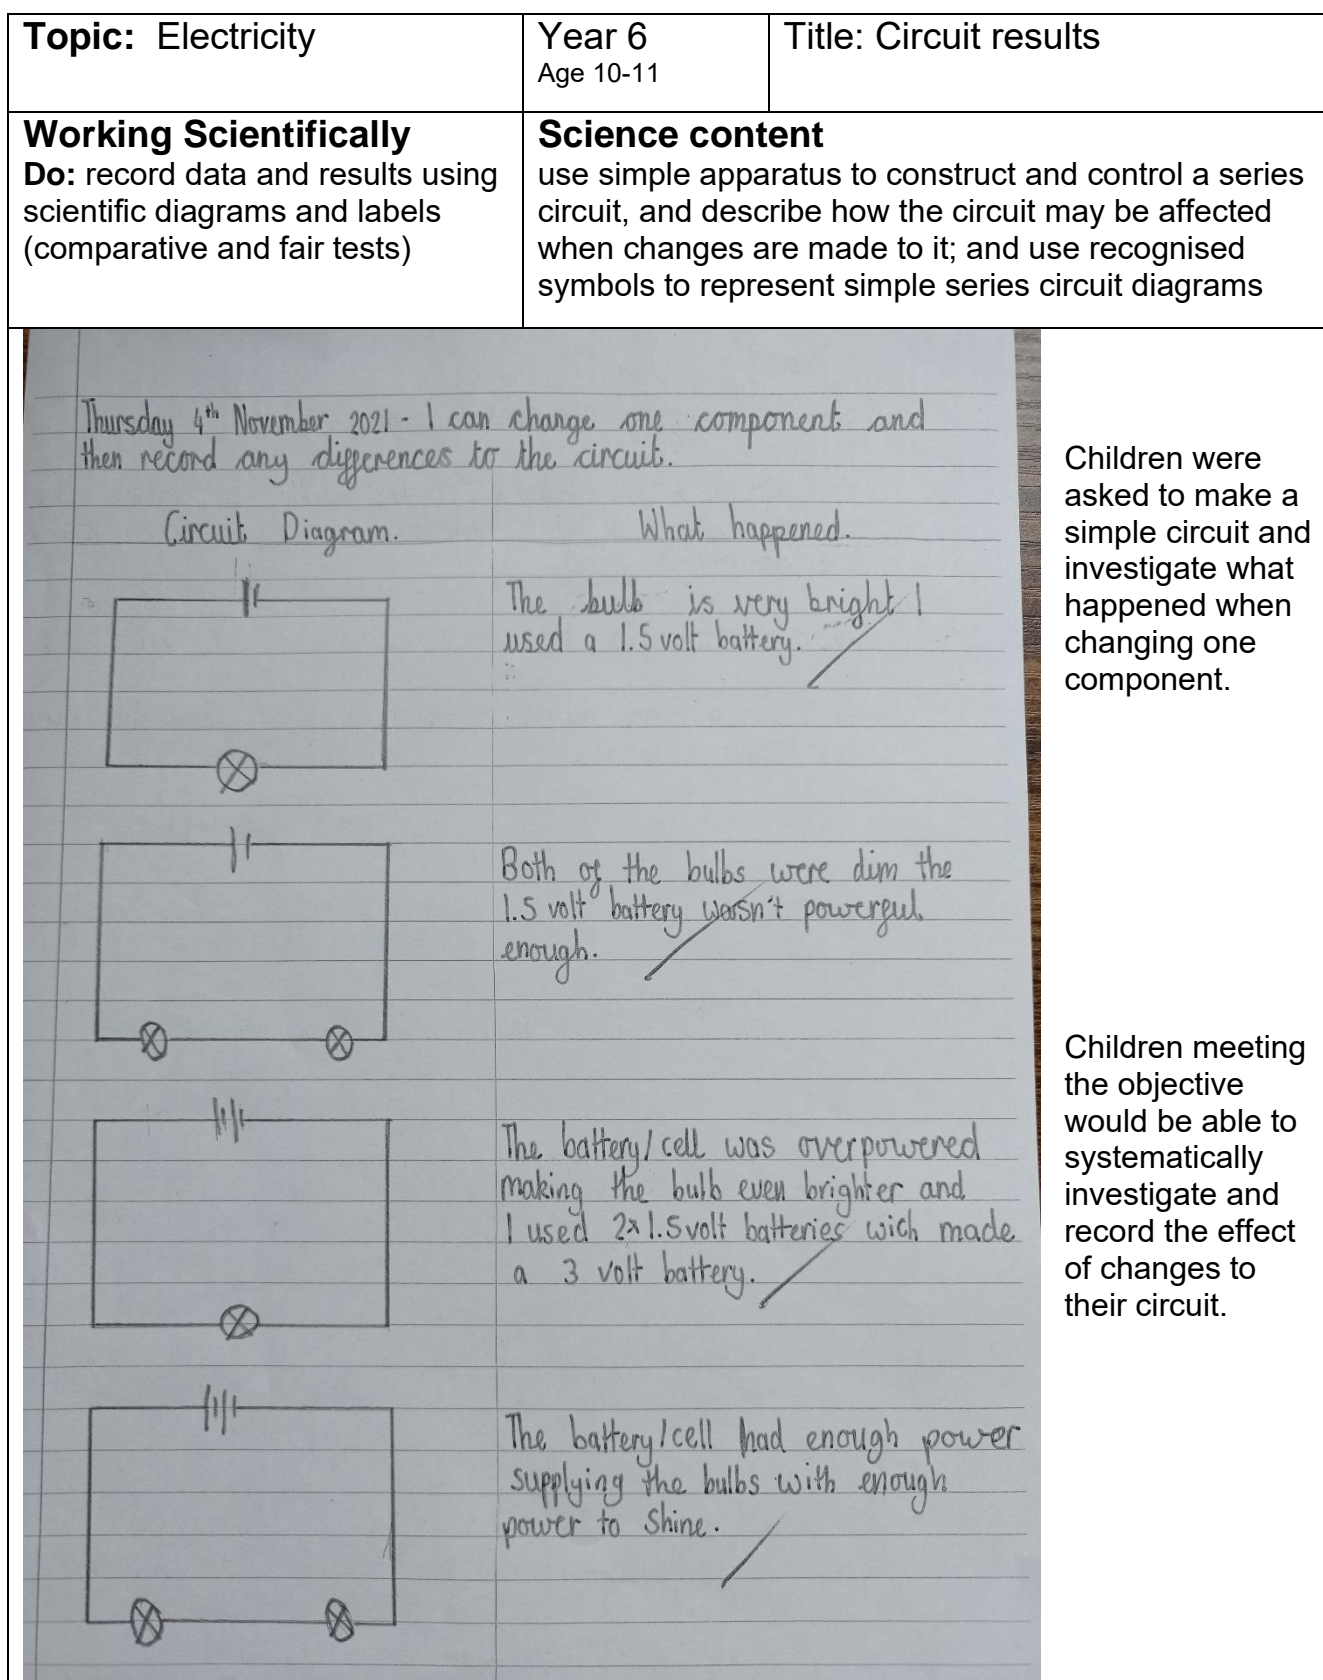 Topic: Electricity
Year 6
Age 10-11
Title: Circuit results
Working Scientifically
Do: record data and results using
scientific diagrams and labels
(comparative and fair tests)
Science content
use simple apparatus to construct and control a series
circuit, and describe how the circuit may be affected
when changes are made to it; and use recognised
symbols to represent simple series circuit diagrams
Thursday 4th November 2021 - I can change one component and
then record any differences to the circuit.
Circuit Diagram.
What happened.
The bulb is very bright I
used a 1.5 volt battery.
Both of the bulbs were dim the
1.5 volt battery wasn't powerful
enough.
The battery/cell was overpowered
making the bulb even brighter and
I used 2x1.5volt batteries wich made
a 3 volt battery.
The battery/cell had enough power
supplying the bulbs with enough
power to shine.
Children were
asked to make a
simple circuit and
investigate what
happened when
changing one
component.
Children meeting
the objective
would be able to
systematically
investigate and
record the effect
of changes to
their circuit.